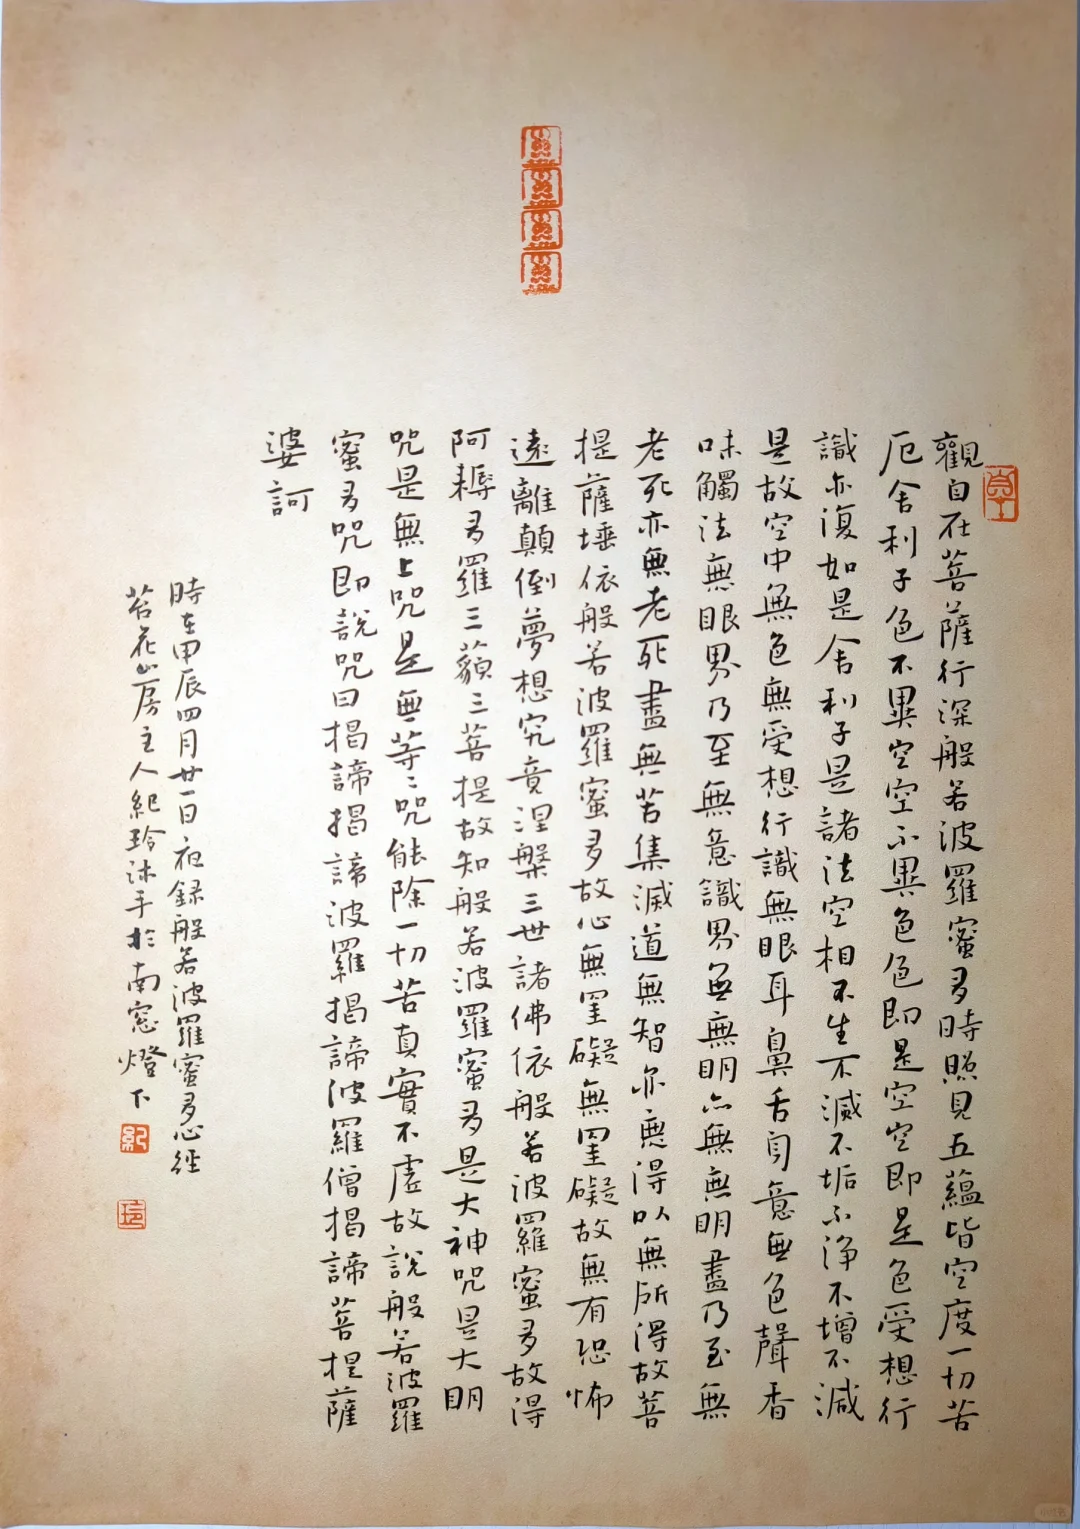 觀自在菩薩行深般若波羅蜜多時照見五蘊皆空度一切苦
厄舍利子色不異空空不異色色即是空空即是色受想行
識亦復如是舍利子是諸法空相不生不滅不垢不淨不增不減
是故空中無色無受想行識無眼耳鼻舌身意無色聲香
味觸法無眼界乃至無意識界無無明亦無無明盡乃至無
老死亦無老死盡無苦集滅道無智亦無得以無所得故菩
提薩埵依般若波羅蜜多故心無罣礙無罣礙故無有恐怖
遠離顛倒夢想究竟涅槃三世諸佛依般若波羅蜜多故得
阿耨多羅三藐三菩提故知般若波羅蜜多是大神咒是大明
咒是無上咒是無等々咒能除一切苦真實不虛故說般若波羅
蜜多咒即說咒曰揭諦揭諦波羅揭諦波羅僧揭諦菩提薩
婆訶
時在甲辰四月廿一日夜録般若波羅蜜多心經
苔花山房主人紀玲沐手於南窓燈下
紀
玲